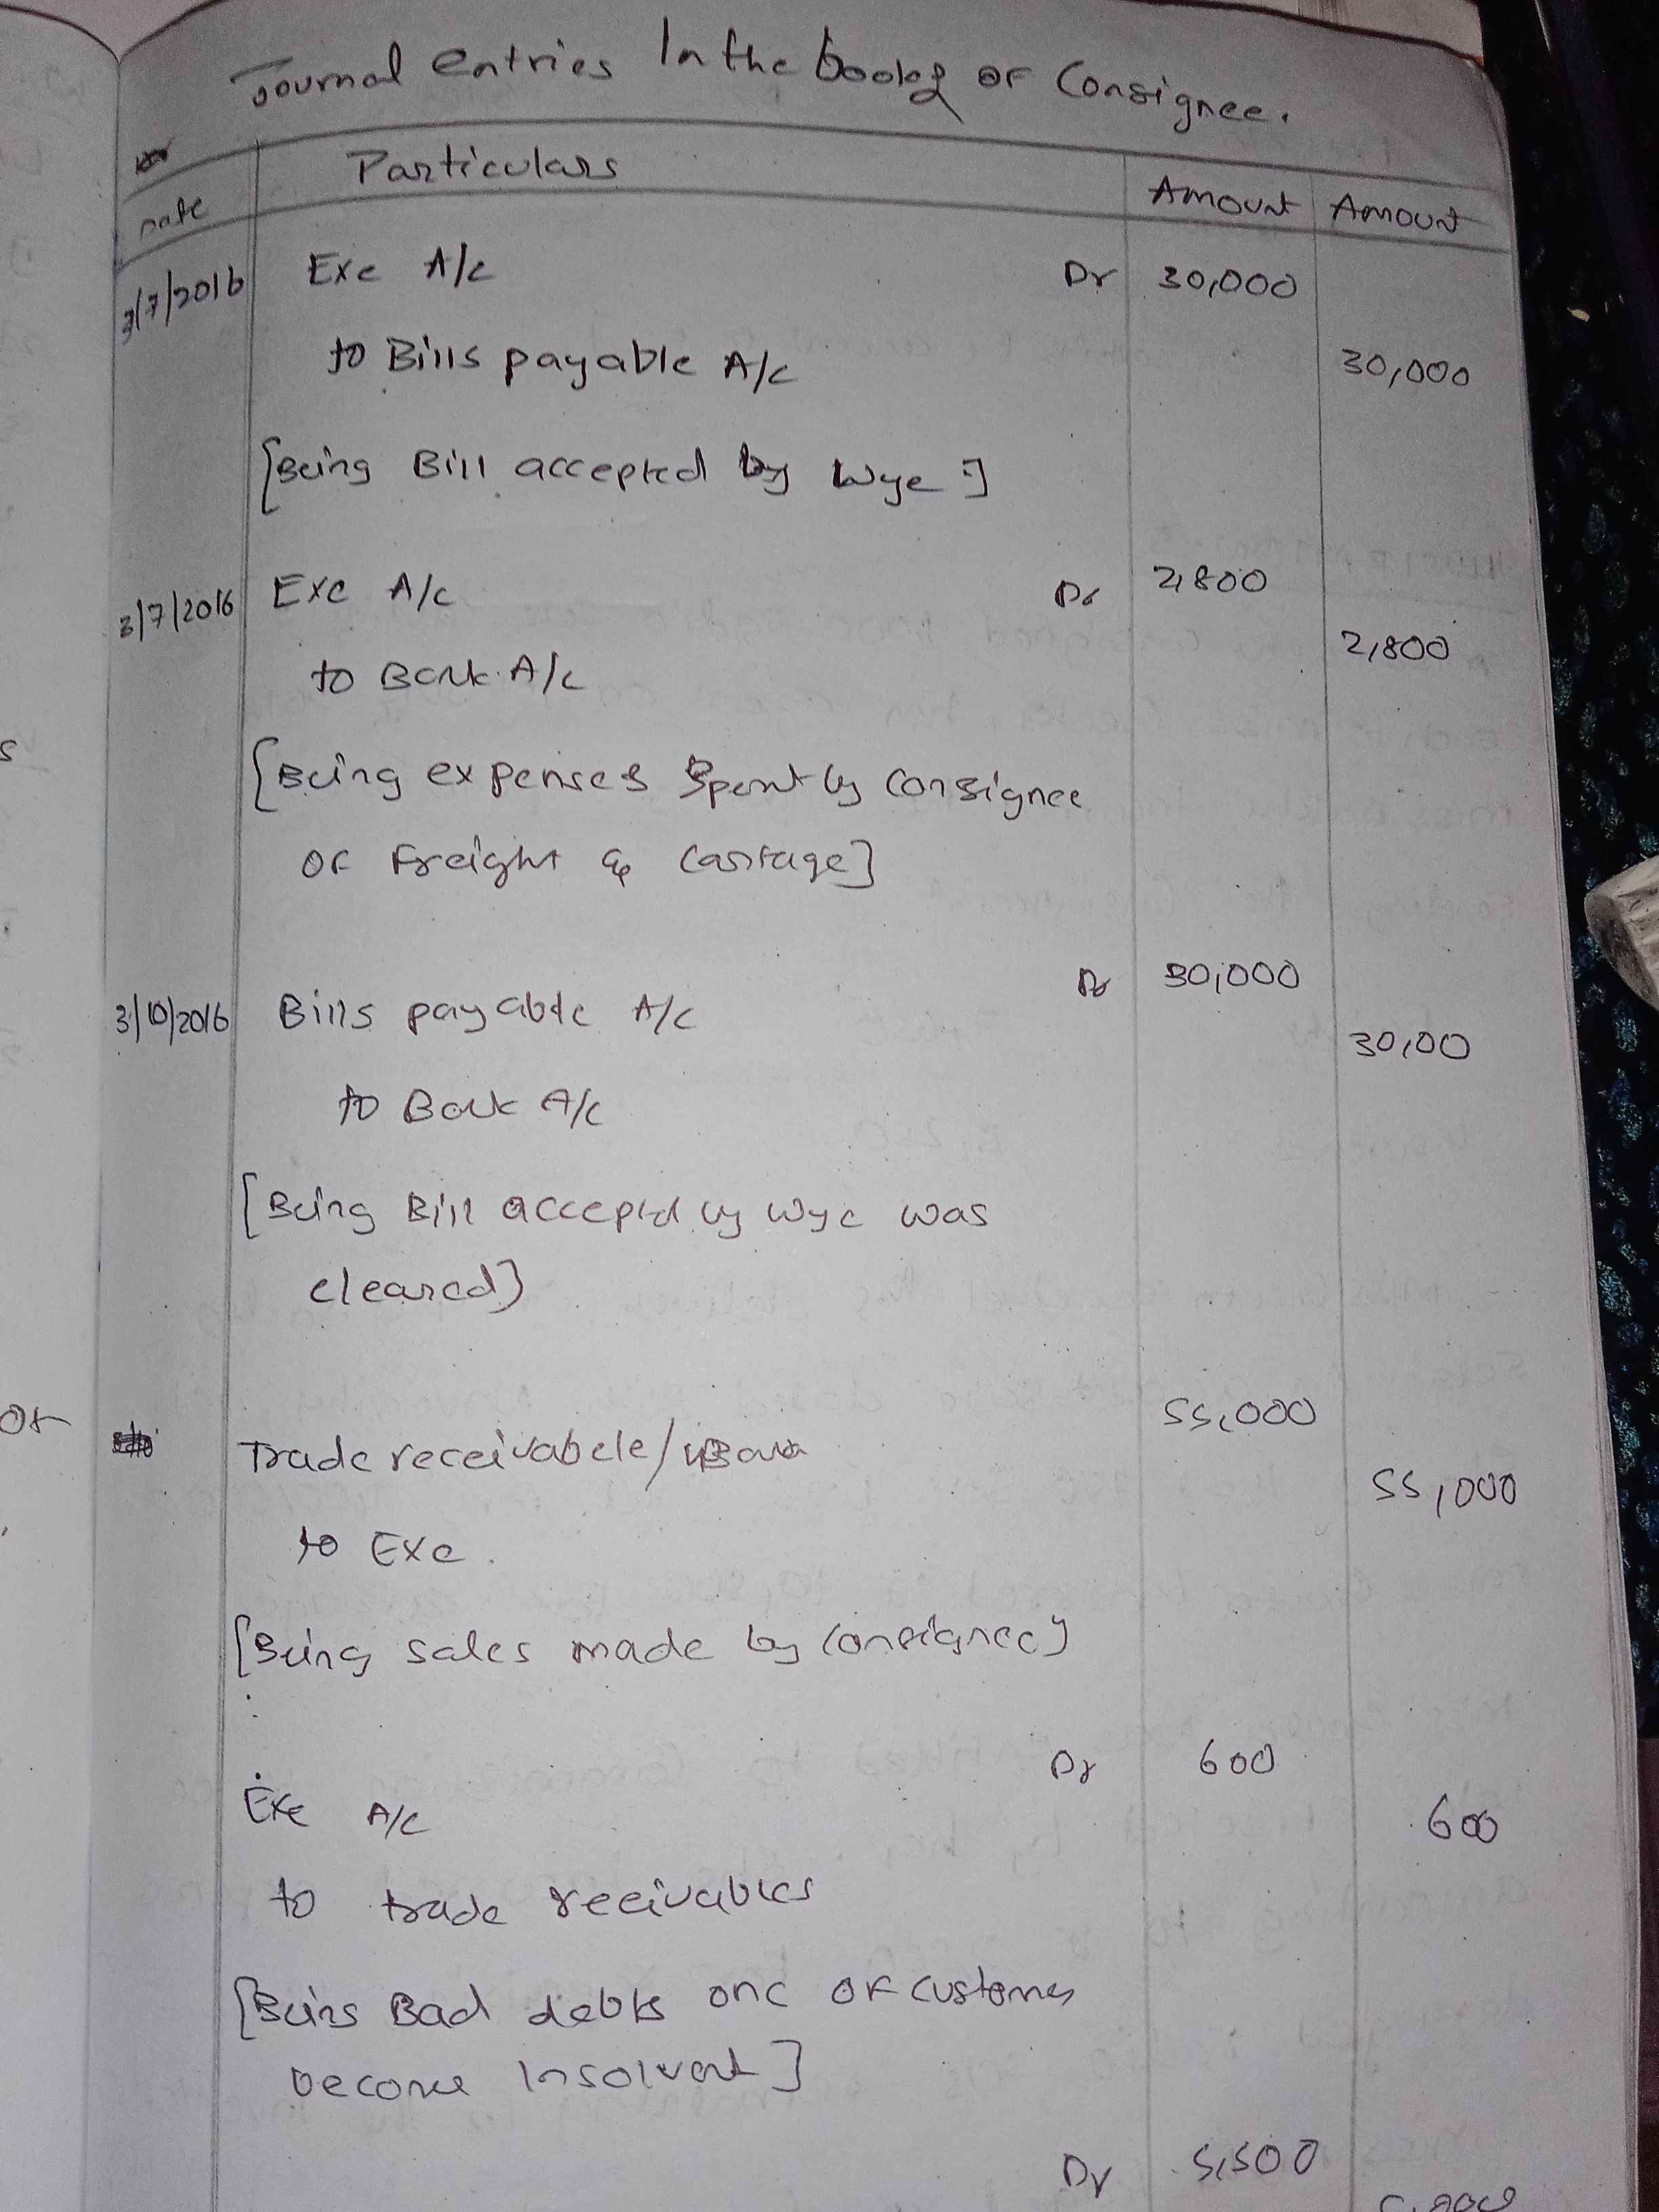 Journal entries In the books of Consignee.
Date Particulars Amount Amount
3/7/2016 Exe A/c Dr 30,000
to Bills payable A/c 30,000
[Being Bill accepted by Wye]
3/7/2016 Exe A/c Dr 2,800
to Bank A/c 2,800
[Being expenses spent by consignee
of Freight & Cartage]
3/10/2016 Bills payable A/c Dr 30,000
to Bank A/c 30,00
[Being Bill accepted by Wye was
cleared]
Trade receivabele/Bank 55,000
to Exe. 55,000
[Being sales made by consignee]
Exe A/c Dr 600
to trade receivables 600
[Being Bad debts one of customer
become Insolvent]
Dr 5,500
s
or